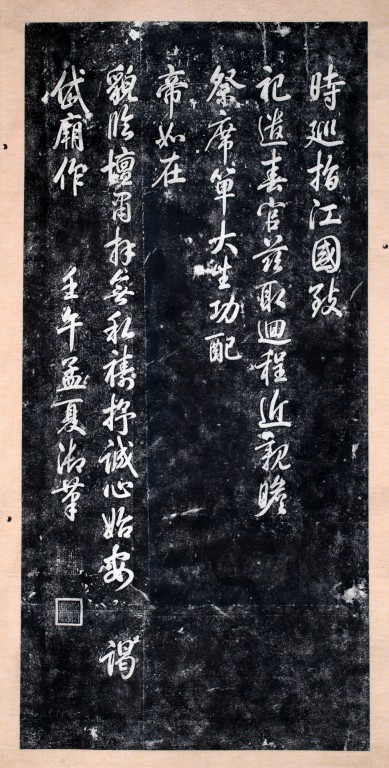 時巡指江國致
祀遣春官茲取迴程近親瞻
祭席單大生功配
帝如在
貌臨壇肅拜無私禱抒誠心始安 謁
岱廟作 壬午孟夏御筆